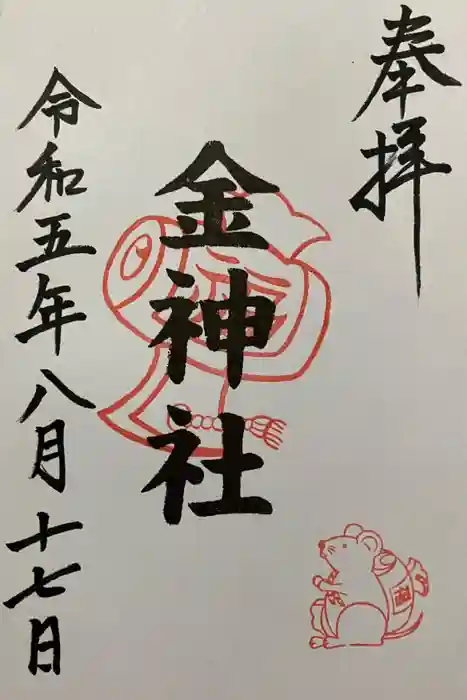 奉拝
金神社
令和五年八月十七日